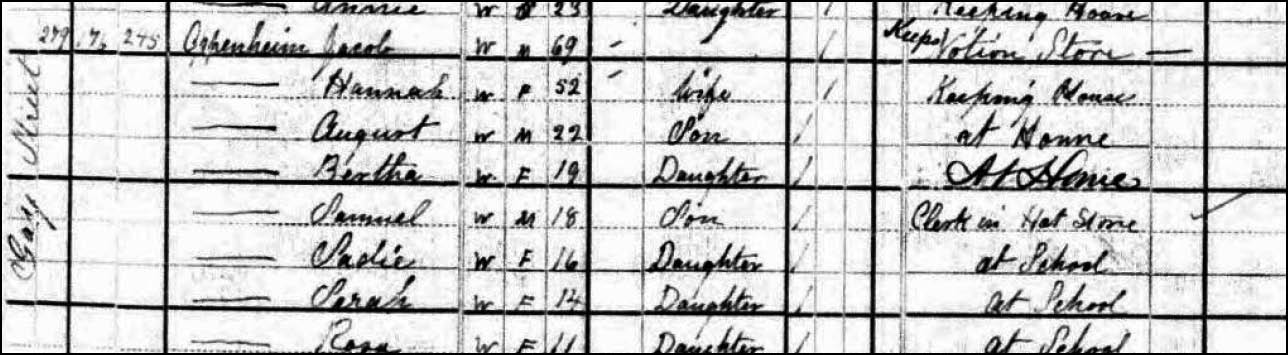 Annie W 23 Daughter / Keeping House
279 176 245 Oppenheim Jacob W M 69 / Keeps Notion Store —
— Hannah W F 52 Wife / Keeping House
— August W M 22 Son / at Home
— Bertha W F 19 Daughter / At Home
— Samuel W M 18 Son / Clerk in Hat Store
— Sadie W F 16 Daughter / at School
— Sarah W F 14 Daughter / at School
— Rosa W F 11 Daughter at School
Gay Street